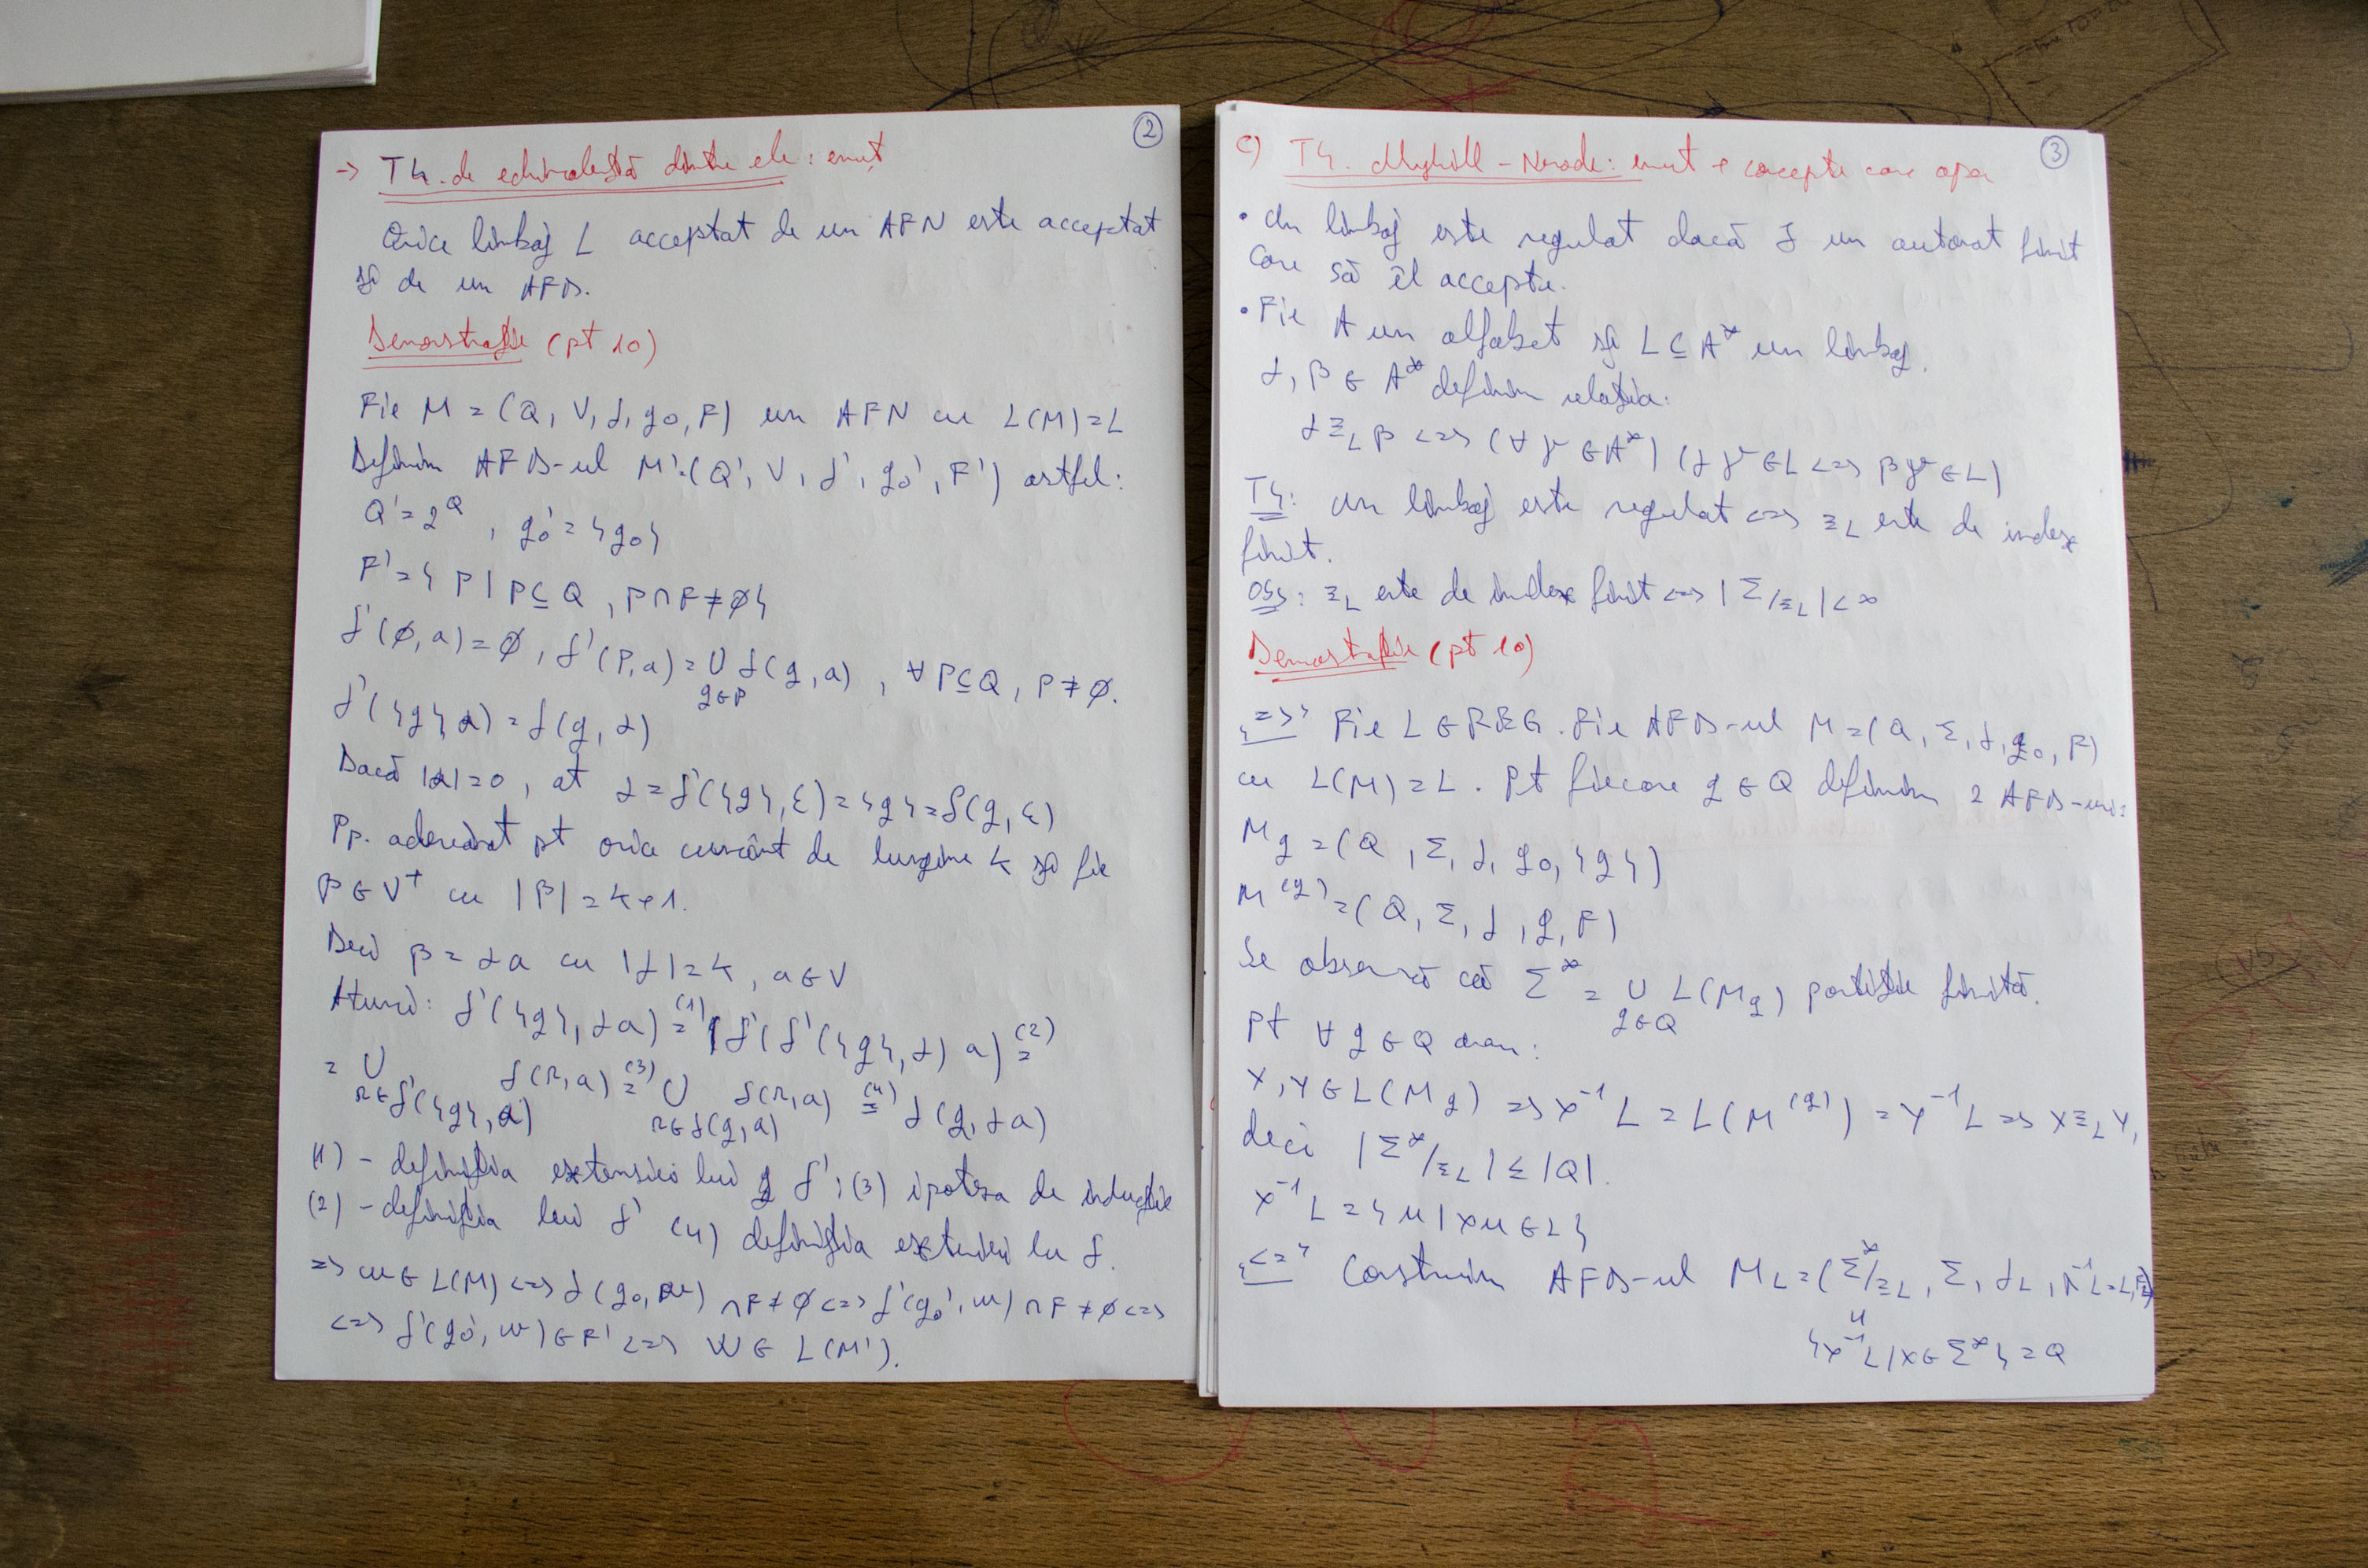 ②
→ Th. de echivalență dintre ele: enunț
Orice limbaj L acceptat de un AFN este acceptat
și de un AFD.
Demonstrație (pt 10)
Fie M = (Q, V, δ, q0, F) un AFN cu L(M) = L
Definim AFD-ul M' = (Q', V, δ', q0', F') astfel:
Q' = 2^Q, q0' = {q0}
F' = {P | P ⊆ Q, P ∩ F ≠ ∅}
δ'(∅, a) = ∅, δ'(P, a) = ∪ δ(q, a), ∀ P ⊆ Q, P ≠ ∅.
q∈P
δ'({q}, α) = δ(q, α)
Dacă |α| = 0, at α = δ'({q}, ε) = {q} = δ(q, ε)
Pp. adevărat pt orice cuvânt de lungime k și fie
β ∈ V⁺ cu |β| = k+1.
Deci β = αa cu |α| = k, a ∈ V
Atunci: δ'({q}, αa) =(1) δ'(δ'({q}, α) a) =(2)
= ∪ δ(r, a) =(3) ∪ δ(r, a) =(4) δ(q, αa)
r∈δ'({q}, α) r∈δ(q, α)
(1) - definiția extensiei lui δ'; (3) ipoteza de inducție
(2) - definiția lui δ' (4) definiția extensiei lui δ.
=> w ∈ L(M) <=> δ(q0, w) ∩ F ≠ ∅ <=> δ'(q0', w) ∩ F ≠ ∅ <=>
<=> δ'(q0', w) ∈ F' <=> w ∈ L(M').
③
c) Th. Myhill - Nerode: enunt + concepte care apar
• Un limbaj este regulat dacă ∃ un automat finit
care să îl accepte.
• Fie A un alfabet și L ⊆ A* un limbaj.
α, β ∈ A* definim relația:
α ≡L β <=> (∀ γ ∈ A*) (αγ ∈ L <=> βγ ∈ L)
Th: Un limbaj este regulat <=> ≡L este de index
finit.
Obs: ≡L este de index finit <=> |Σ/≡L| < ∞
Demonstrație (pt 10)
"=>" Fie L ∈ REG. Fie AFD-ul M = (Q, Σ, δ, q0, F)
cu L(M) = L. Pt fiecare q ∈ Q definim 2 AFD-uri:
Mq = (Q, Σ, δ, q0, {q})
M^(q) = (Q, Σ, δ, q, F)
Se observă că Σ* = ∪ L(Mq) partiție finită.
q∈Q
Pt ∀ q ∈ Q avem:
x, y ∈ L(Mq) => x⁻¹L = L(M^(q)) = y⁻¹L => x ≡L y,
deci |Σ*/≡L| ≤ |Q|.
x⁻¹L = {u | xu ∈ L}
"<=" Construim AFD-ul ML = (Σ*/≡L, Σ, δL, λ⁻¹L = L, FL)
{x⁻¹L | x ∈ Σ*} = Q